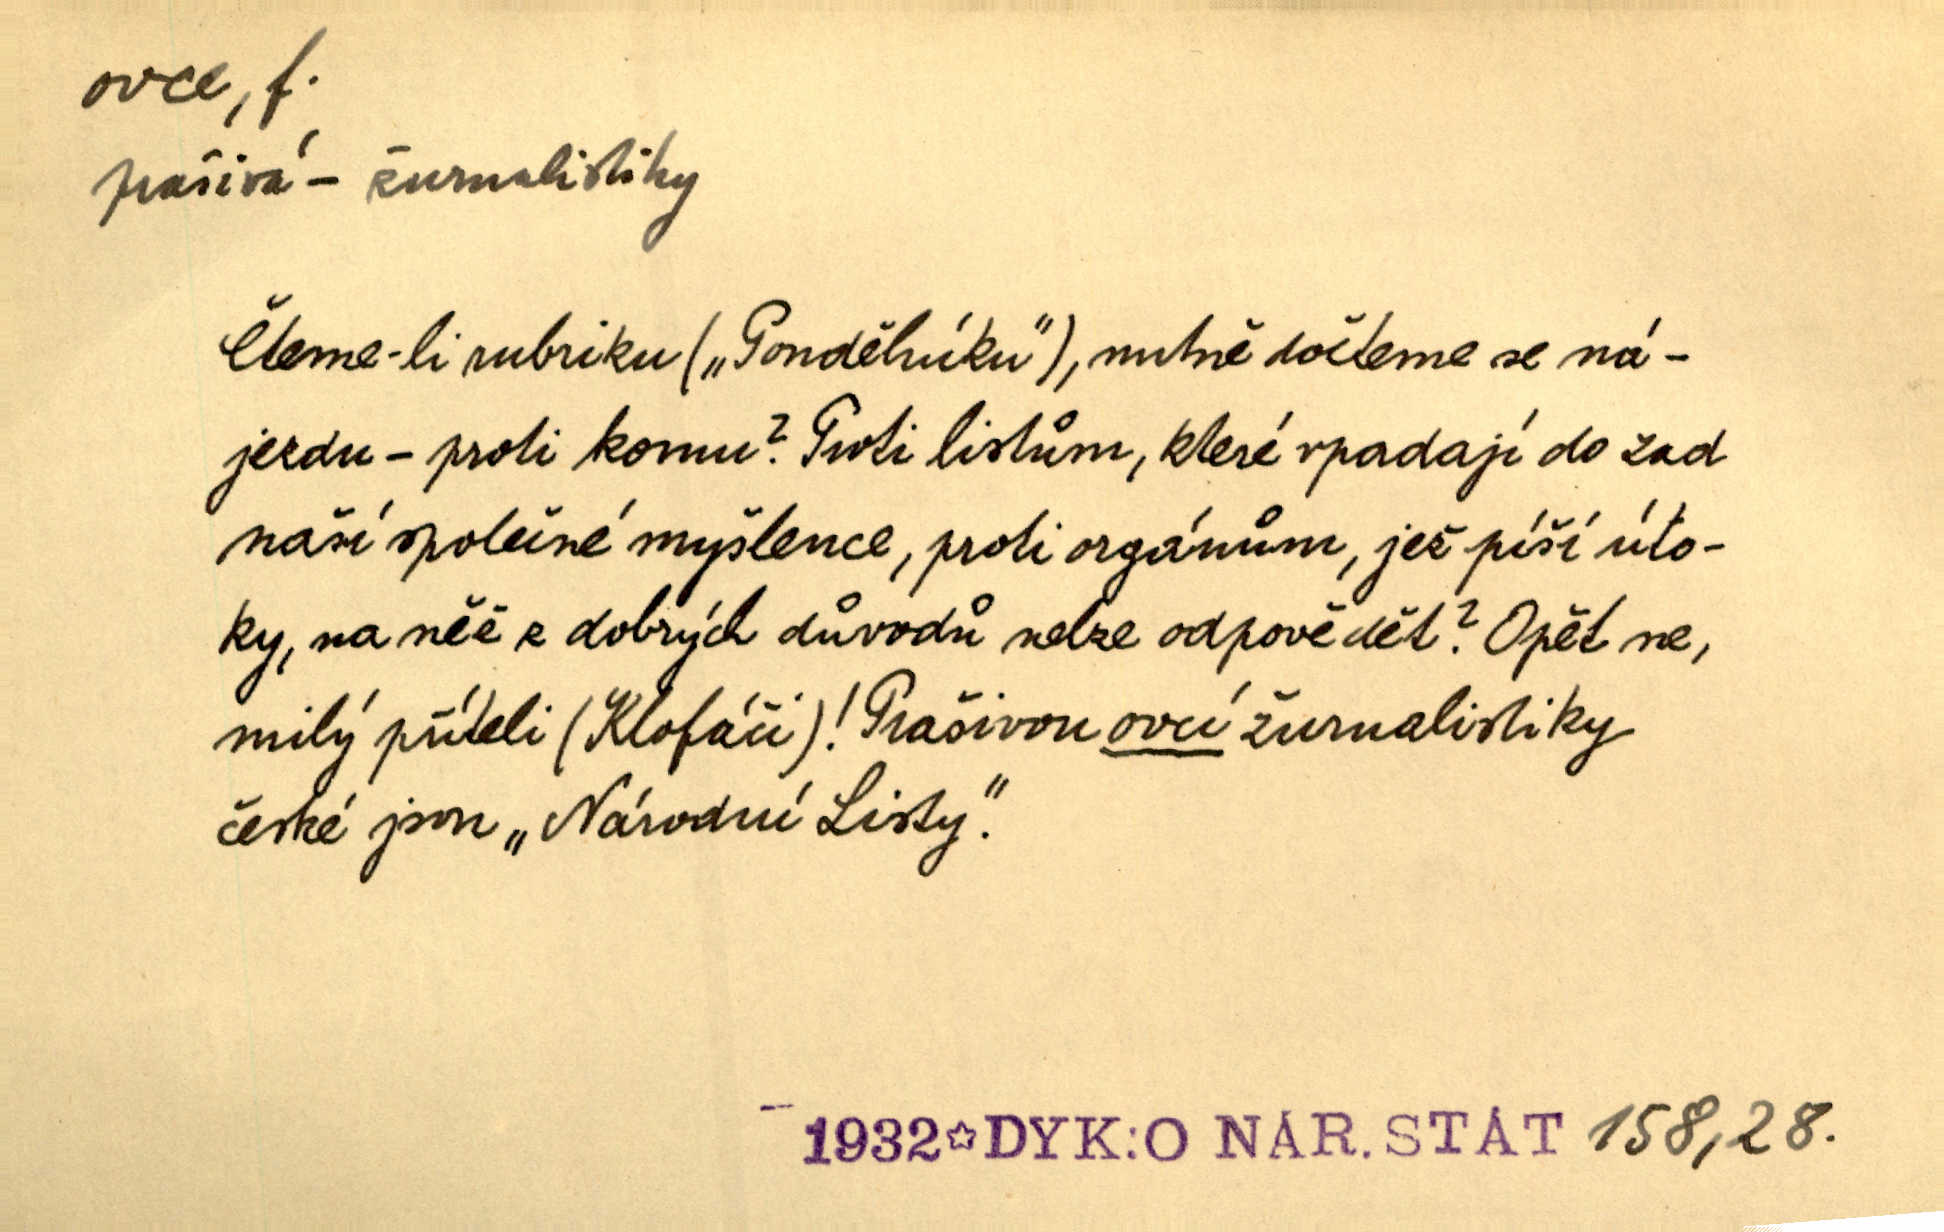 ovce, f.
prašivá – žurnalistiky
Čteme-li rubriku („Pondělníku“), nutně dočteme se ná-
jezdu – proti komu? Proti listům, které vpadají do zad
naší společné myšlence, proti orgánům, jež píší úto-
ky, na něž z dobrých důvodů nelze odpovědět? Opět ne,
milý příteli (Klofáči)! Prašivou ovcí žurnalistiky
české jsou „Národní Listy“.
1932☆DYK:O NÁR.STÁT 158,28.